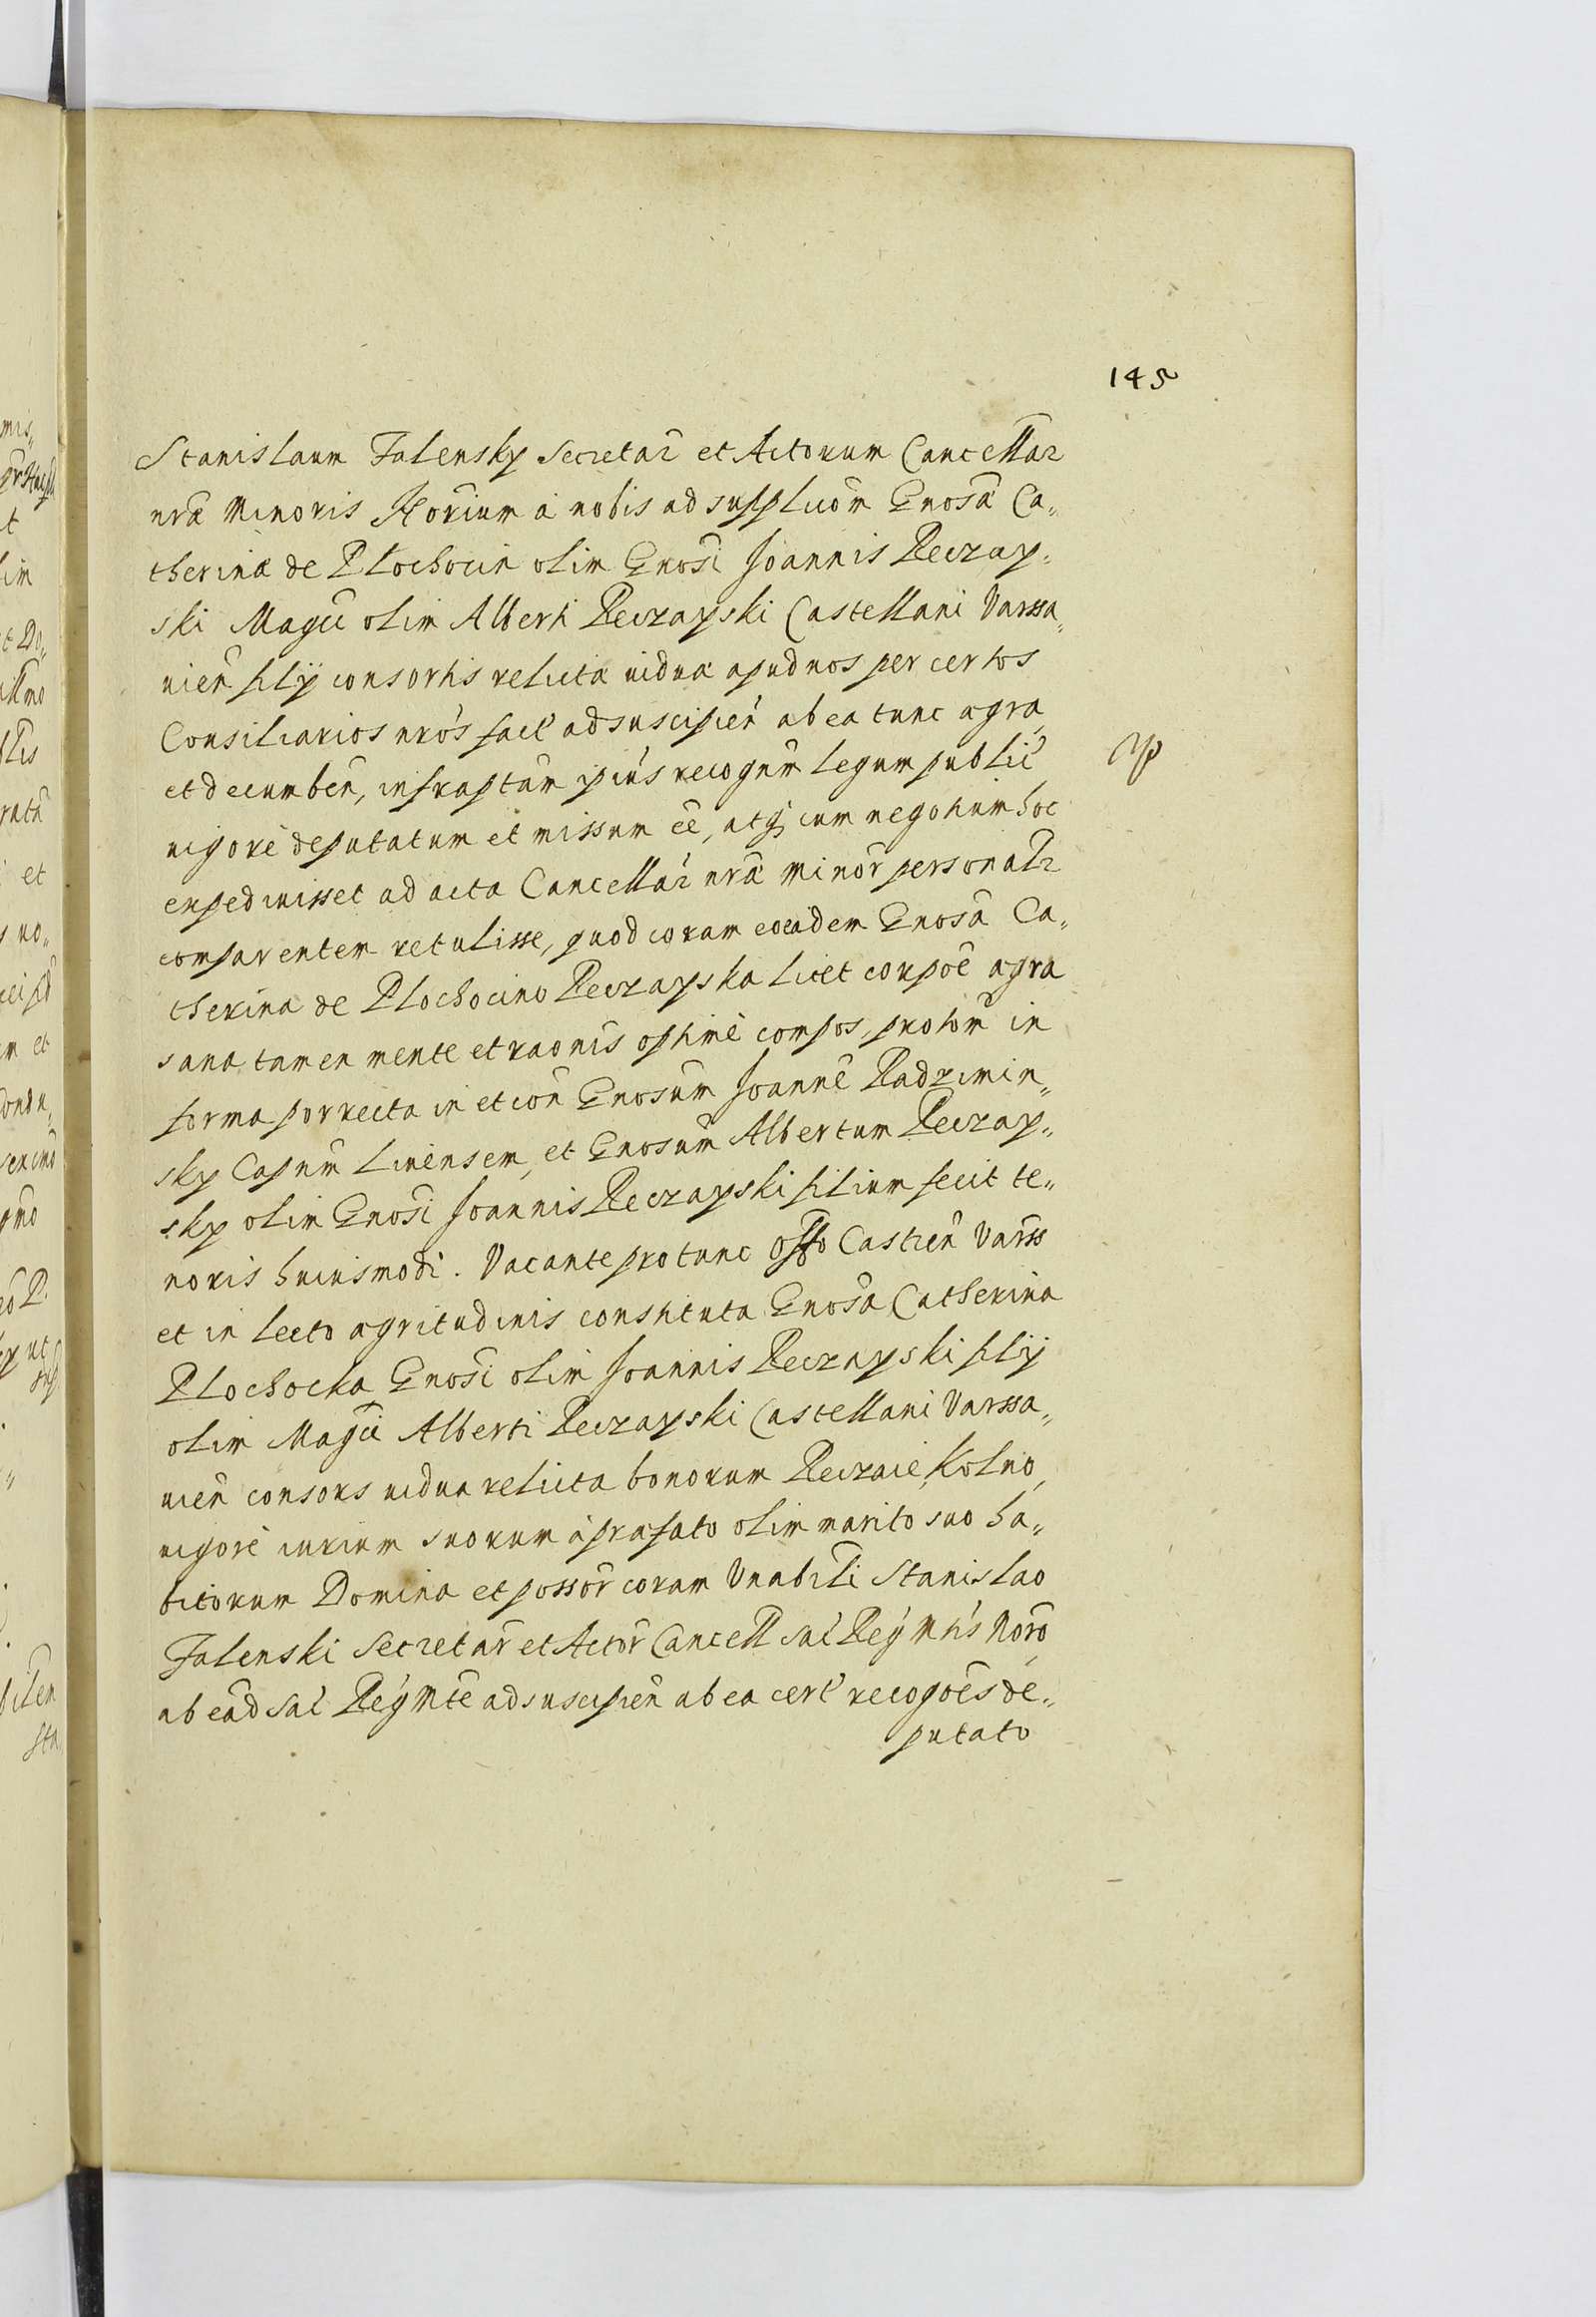 145
Stanislaum Falensky Secretar et Actorum Cancellar
nrã Minoris Notorium à nobis ad supplicõm Gnosã Ca„
therinæ de Plochocin olim Gnosi Joannis Reczay„
ski Magci olim Alberti Reczayski Castellani Varssa„
vien filÿ consortis relicta vidua apud nos per certos
Consiliarios nros fact ad suscipien ab ea tunc ægra
et decumben, infraptam ipius recognem legum public
vigore deputatum et missum ẽe, atq; cum negotium hoc
expedivisset ad acta Cancellar nrã Minor personalr
comparentem retulisse, quod coram eo eadem Gnosa Ca„
therina de Plochocino Reczayska licet corpoe ægra
sana tamen mente et raonis optime compos, protom in
forma porrecta in et con Gnosum Joannẽ Radzimin„
sky Capnm Livensem, et Gnosum Albertum Reczay„
sky olim Gnosi Joannis Reczayski filium fecit te„
noris huiusmodi. Vacante pro tunc offo Castren Varss
et in lecto ægritudinis constituta Gnosa Catherina
Plochocka Gnosi olim Joannis Reczayski filÿ
olim Magci Alberti Reczayski Castellani Varssa„
vien consors vidua relicta bonorum Reczaie, Kolno
vigore iurium suorum à præfato olim marito suo ha„
bitorum Domina et possor coram Vnabili Stanislao
Falenski Secretar et Actor Cancell Sac Reg Mtis Noro
ab ead Sac Reg Mte ad suscipien ab ea cert recogoes de„
putato